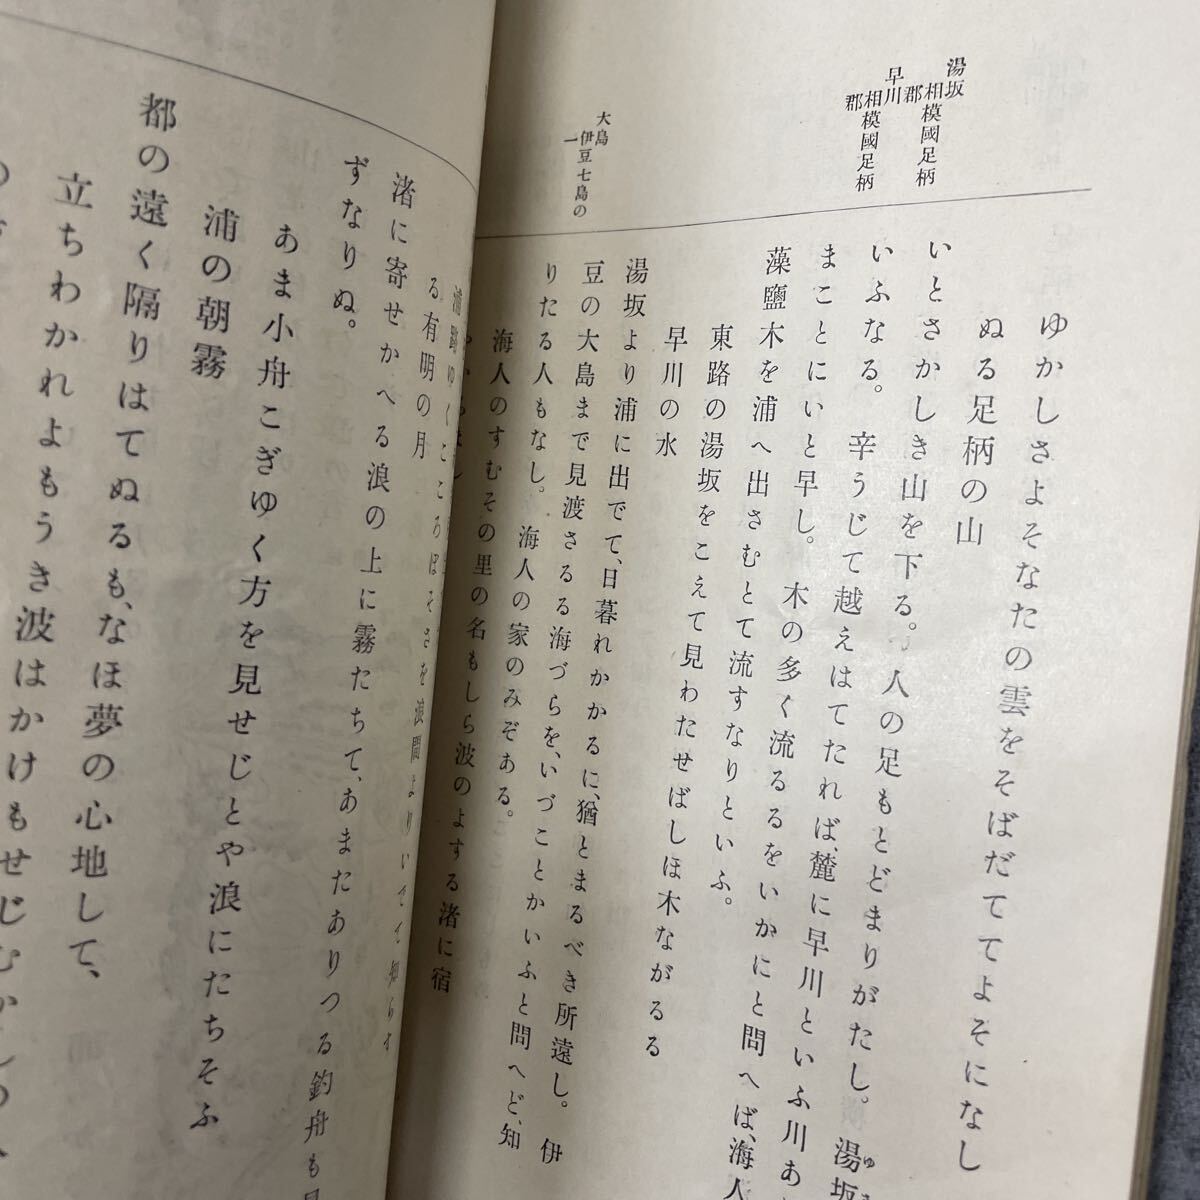 湯坂
相模國足柄
郡
早川
相模國足柄
郡
大島
伊豆七島の
一
ゆかしさよそなたの雲をそばだててよそになし
ぬる足柄の山
いとさかしき山を下る。人の足もとどまりがたし。湯坂
ゆ
いふなる。辛うじて越えはてたれば、麓に早川といふ川あ
まことにいと早し。木の多く流るるをいかにと問へば、海人
藻鹽木を浦へ出さむとて流すなりといふ。
東路の湯坂をこえて見わたせばしほ木ながるる
早川の水
湯坂より浦に出でて、日暮れかかるに、猶とまるべき所遠し。伊
豆の大島まで見渡さるる海づらを、いづことかいふと問へど、知
りたる人もなし。海人の家のみぞある。
海人のすむその里の名もしら波のよする渚に宿
浦路ゆくこころぼそさを浪間よりいでて知らす
る有明の月
渚に寄せかへる浪の上に霧たちて、あまたありつる釣舟も
ずなりぬ。
あま小舟こぎゆく方を見せじとや浪にたちそふ
浦の朝霧
都の遠く隔りはてぬるも、なほ夢の心地して、
立ちわかれよもうき波はかけもせじむかしの人